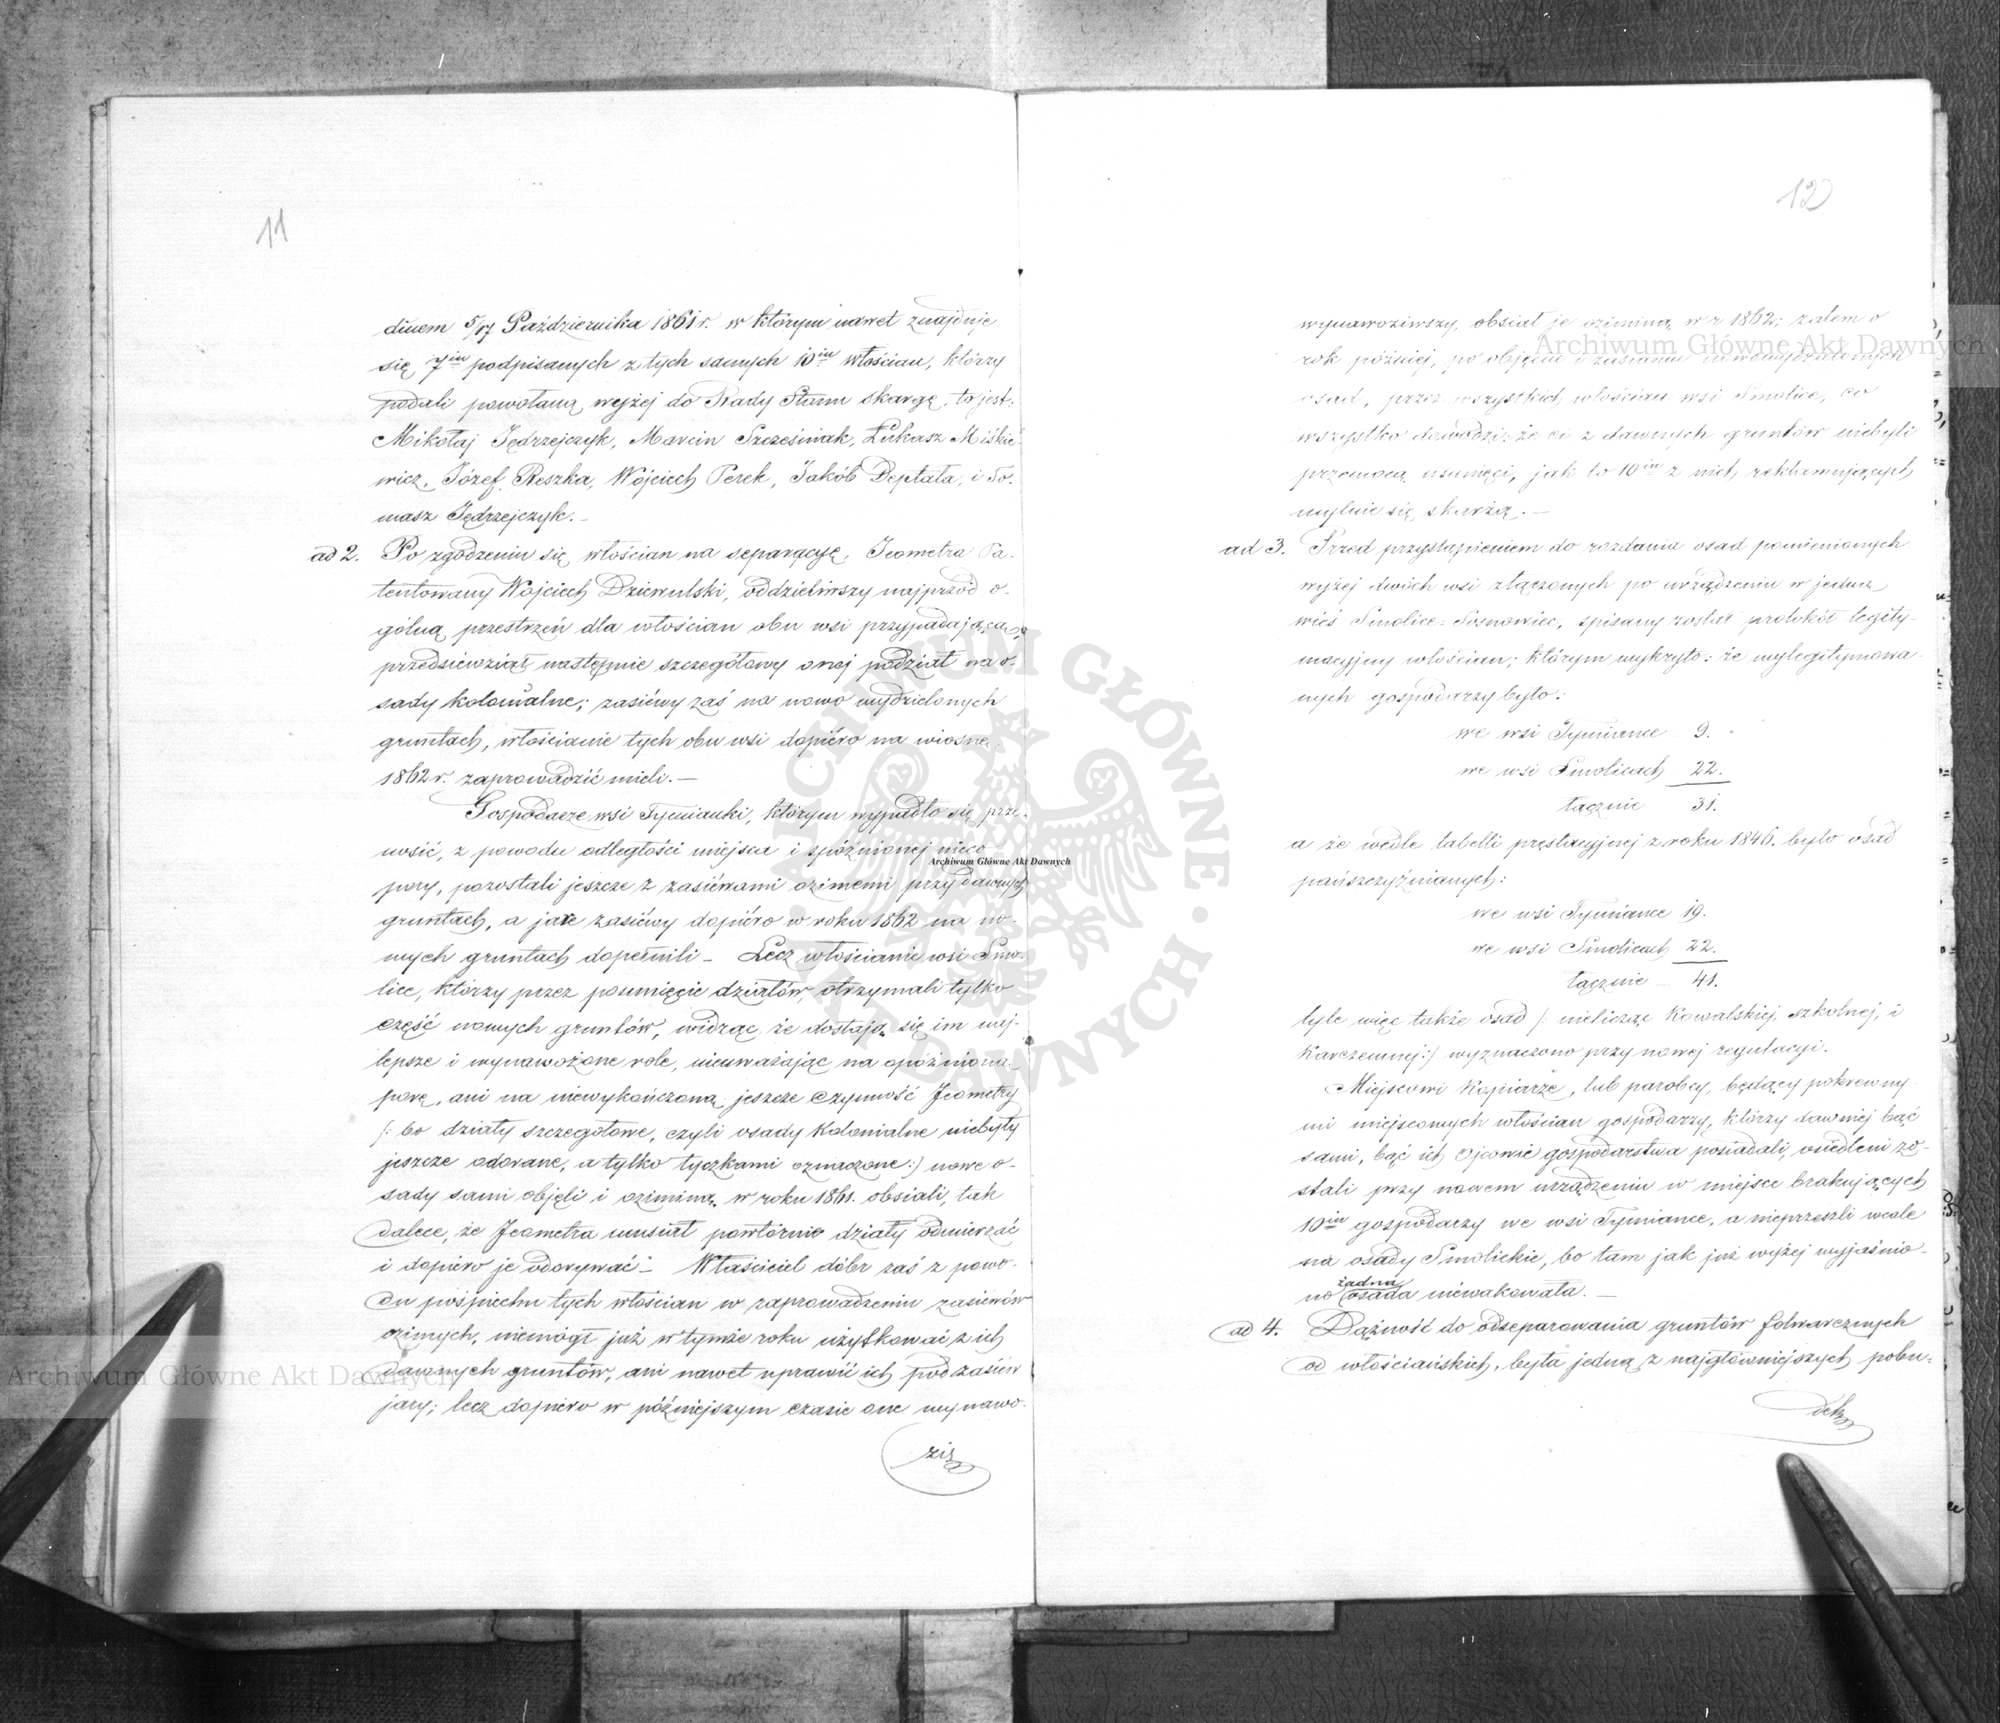 11
dniem 5/17 Października 1861 r. w którym nawet znajduje
się 7iu podpisanych z tych samych 10iu włościan, którzy
podali powołaną wyżej do Rady Stanu skargę, to jest:
Mikołaj Jędrzejczyk, Marcin Szcześniak, Łukasz Miśkie-
wicz, Józef Reszka, Wójciech Perek, Jakób Deptała, i To-
masz Jędrzejczyk. –
ad 2. Po zgodzeniu się włościan na separacyę, Jeometra Pa-
tentowany Wojciech Dziewulski, oddzieliwszy najprzód o-
gólną przestrzeń dla włościan obu wsi przypadającą,
przedsięwziął następnie szczegółowy onej podział na o-
sady kolonialne; zasiéwy zaś na nowo wydzielonych
gruntach, włościanie tych obu wsi dopiéro na wiosnę
1862 r. zaprowadzić mieli. –
Gospodarze wsi Tymianki, którym wypadło się prze-
nosić, z powodu odległości miejsca i spóźnionej nieco
pory, pozostali jeszcze z zasiéwami ozimemi przy dawnych
gruntach, a jare zasiéwy dopiéro w roku 1862 na no-
wych gruntach dopełnili – Lecz włościanie wsi Smo-
lice, którzy przez posunięcie działów, otrzymali tylko
część nowych gruntów, widząc że dostają się im naj-
lepsze i wynawożone role, nieuważając na opóźnioną
porę, ani na niewykończoną jeszcze czynność Jeometry
/: bo działy szczegółowe, czyli osady kolonialne niebyły
jeszcze odorane, a tylko tyczkami oznaczone :/ nowe o-
sady sami objęli i oziminą w roku 1861. obsiali, tak
dalece, że Jeometra musiał powtórnie działy odmierzać
i dopiéro je odorywać – Właściciel dóbr zaś z powo-
du pośpiechu tych włościan w zaprowadzeniu zasiewów
ozimych, niemógł już w tymże roku użytkować z ich
dawnych gruntów, ani nawet uprawić ich pod zasiéw
jary; lecz dopiéro w późniejszym czasie one wynawo-
ziw
12
wynawoziwszy, obsiał je oziminą w r 1862; zatem o
rok później, po objęciu i zasianiu nowowydzielonych
osad, przez wszystkich włościan wsi Smolice, co
wszystko dowodzi: że ci z dawnych gruntów niebyli
przemocą usunięci, jak to 10iu z nich reklamujących
mylnie się skarżą. –
ad 3. Przed przystąpieniem do rozdania osad pomienionych
wyżej dwóch wsi złączonych po urządzeniu w jedną
wieś Smolice-Sosnowiec, spisany został protokół legity-
macyjny włościan; którym wykryto: że wylegitymowa-
nych gospodarzy było:
we wsi Tymiance 9.
we wsi Smolicach 22.
łącznie 31.
a że wedle tabelli prestacyjnej z roku 1846. było osad
pańszczyźnianych:
we wsi Tymiance 19.
we wsi Smolicach 22.
łącznie – 41.
tyle więc także osad /: nielicząc kowalskiej, szkolnej, i
karczemnej :/ wyznaczono przy nowej regulacyi.
Miejscowi kopiarze, lub parobcy, będący pokrewny-
mi miejscowych włościan gospodarzy, którzy dawniej bąć
sami, bąć ich ojcowie gospodarstwa posiadali, osiedleni zo-
stali przy nowem urządzeniu w miejsce brakujących
10iu gospodarzy we wsi Tymiance, a nieprzeszli wcale
na osady Smolickie, bo tam jak już wyżej wyjaśnio-
no żadna osada niewakowała. –
ad 4. Dążność do odseparowania gruntów folwarcznych
od włościańskich, była jedną z najgłówniejszych pobu-
dek
Archiwum Główne Akt Dawnych
Archiwum Główne Akt Dawnych
Archiwum Główne Akt Dawnych
ARCHIWUM GŁÓWNE AKT DAWNYCH